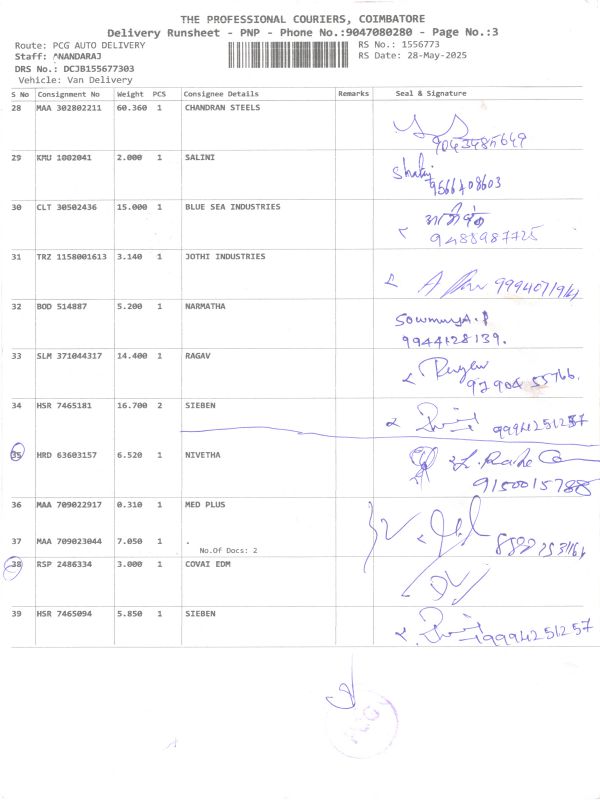 THE PROFESSIONAL COURIERS, COIMBATORE
Delivery Runsheet - PNP - Phone No.:9047080280 - Page No.:3
Route: PCG AUTO DELIVERY RS No.: 1556773
Staff: ANANDARAJ RS Date: 28-May-2025
DRS No.: DCJB155677303
Vehicle: Van Delivery
S No Consignment No Weight PCS Consignee Details Remarks Seal & Signature
28 MAA 302802211 60.360 1 CHANDRAN STEELS
9043485649
29 KMU 1002041 2.000 1 SALINI
9566408603
30 CLT 30502436 15.000 1 BLUE SEA INDUSTRIES
9488987725
31 TRZ 1158001613 3.140 1 JOTHI INDUSTRIES
32 BOD 514887 5.200 1 NARMATHA
9944128139.
33 SLM 371044317 14.400 1 RAGAV
97904 55766.
34 HSR 7465181 16.700 2 SIEBEN
9994251257
35 HRD 63603157 6.520 1 NIVETHA
9150015788
36 MAA 709022917 0.310 1 MED PLUS
37 MAA 709023044 7.050 1 .
No.Of Docs: 2
38 RSP 2486334 3.000 1 COVAI EDM
39 HSR 7465094 5.850 1 SIEBEN
9994251257
PCG